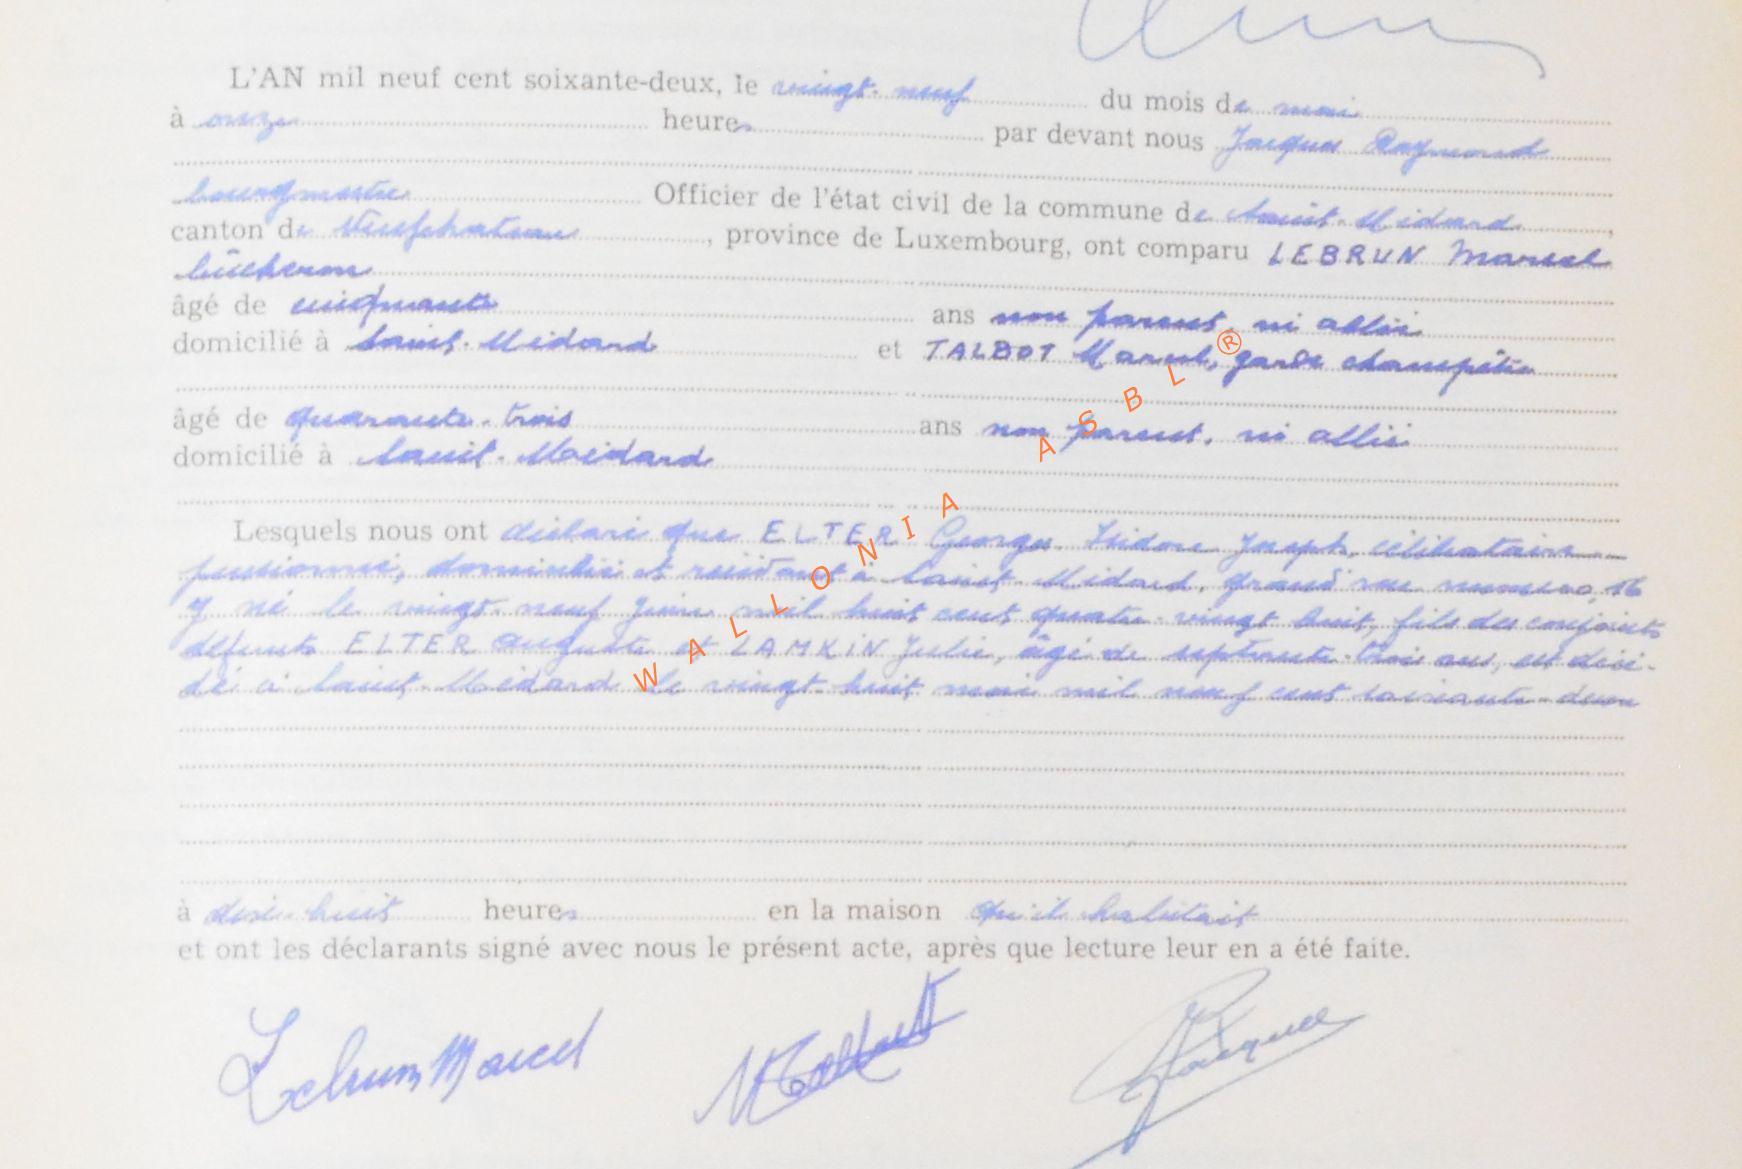 L'AN mil neuf cent soixante-deux, le vingt-neuf du mois de mai
à onze heures par devant nous Jacques Raymond
bourgmestre Officier de l'état civil de la commune de Saint-Médard,
canton de Neufchateau, province de Luxembourg, ont comparu LEBRUN Marcel
bûcheron
âgé de cinquante ans non parent, ni allié
domicilié à Saint-Médard et TALBOT Marcel, garde champêtre
âgé de quarante-trois ans non parent, ni allié
domicilié à Saint-Médard
Lesquels nous ont déclaré que ELTER Georges Isidore Joseph, célibataire
pensionné, domicilié et résidant à Saint-Médard, grand'rue numéro, 16
y né le vingt-neuf juin mil huit cent quatre-vingt huit, fils des conjoints
défunts ELTER Auguste et LAMKIN Julie, âgé de septante-trois ans, est décé-
dé à Saint-Médard le vingt-huit mai mil neuf cent soixante-deux
à dix-huit heures en la maison qu'il habitait
et ont les déclarants signé avec nous le présent acte, après que lecture leur en a été faite.
Lebrun Marcel M Talbot Jacques
WALLONIA ASBL ®